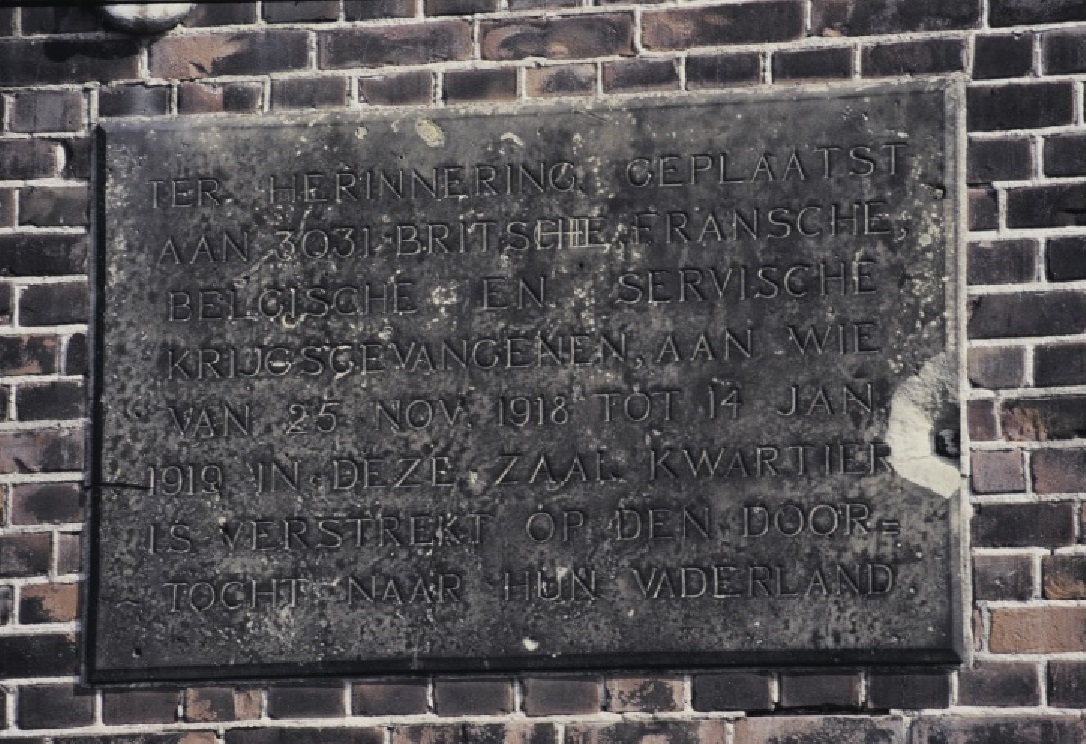 TER HERINNERING GEPLAATST
AAN 3031 BRITSCHE, FRANSCHE,
BELGISCHE EN SERVISCHE
KRIJGSGEVANGENEN, AAN WIE
VAN 25 NOV. 1918 TOT 14 JAN.
1919 IN DEZE ZAAL KWARTIER
IS VERSTREKT OP DEN DOOR=
TOCHT NAAR HUN VADERLAND.